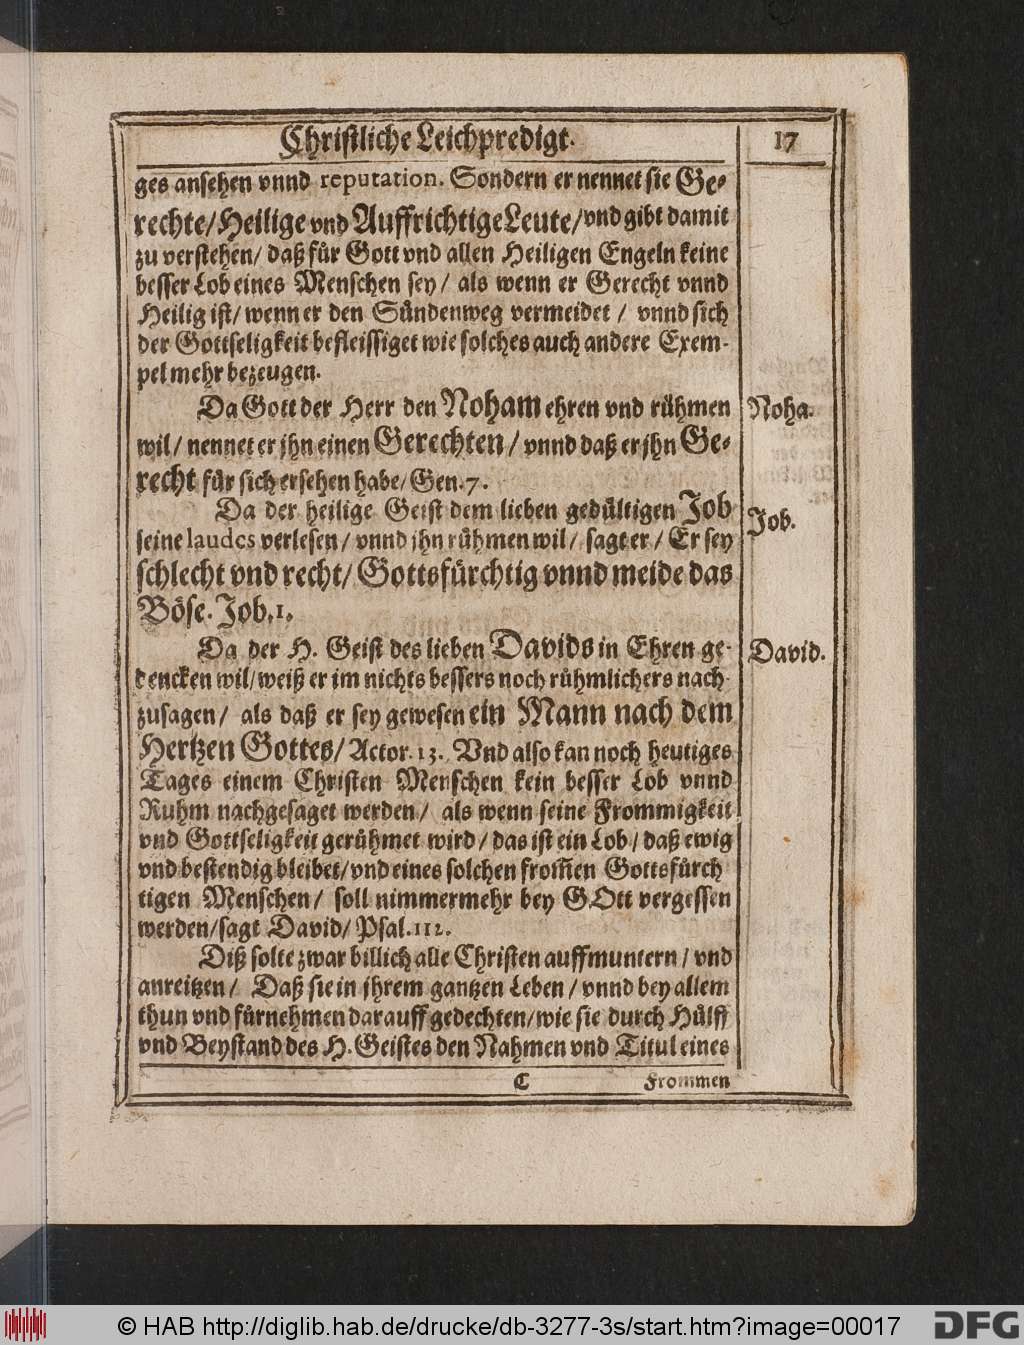 Christliche Leichpredigt.
17
ges ansehen vnnd reputation. Sondern er nennet sie Ge-
rechte/ Heilige vnd Auffrichtige Leute/ vnd gibt damit
zu verstehen/ daß für Gott vnd allen Heiligen Engeln keine
besser Lob eines Menschen sey/ als wenn er Gerecht vnnd
Heilig ist/ wenn er den Sündenweg vermeidet/ vnnd sich
der Gottseligkeit befleissiget wie solches auch andere Exem-
pel mehr bezeugen.
Da Gott der Herr den Noham ehren vnd rühmen
Noha.
wil/ nennet er jhn einen Gerechten/ vnnd daß er jhn Ge-
recht für sich ersehen habe/ Gen. 7.
Da der heilige Geist dem lieben gedültigen Job
Job.
seine laudes verlesen/ vnnd jhn rühmen wil/ sagt er/ Er sey
schlecht vnd recht/ Gottsfürchtig vnnd meide das
Böse. Job. 1.
Da der H. Geist des lieben Davids in Ehren ge-
David.
dencken wil/ weiß er im nichts bessers noch rühmlichers nach
zusagen/ als daß er sey gewesen ein Mann nach dem
Hertzen Gottes/ Actor. 13. Vnd also kan noch heutiges
Tages einem Christen Menschen kein besser Lob vnnd
Ruhm nachgesaget werden/ als wenn seine Frommigkeit
vnd Gottseligkeit gerühmet wird/ das ist ein Lob/ daß ewig
vnd bestendig bleibet/ vnd eines solchen from̃en Gottsfürch
tigen Menschen/ soll nimmermehr bey GOtt vergessen
werden/ sagt David/ Psal. 112.
Diß solte zwar billich alle Christen auffmuntern/ vnd
anreitzen/ Daß sie in jhrem gantzen Leben/ vnnd bey allem
thun vnd fürnehmen darauff gedechten/ wie sie durch Hülff
vnd Beystand des H. Geistes den Nahmen vnd Titul eines
C
Frommen
© HAB http://diglib.hab.de/drucke/db-3277-3s/start.htm?image=00017
DFG